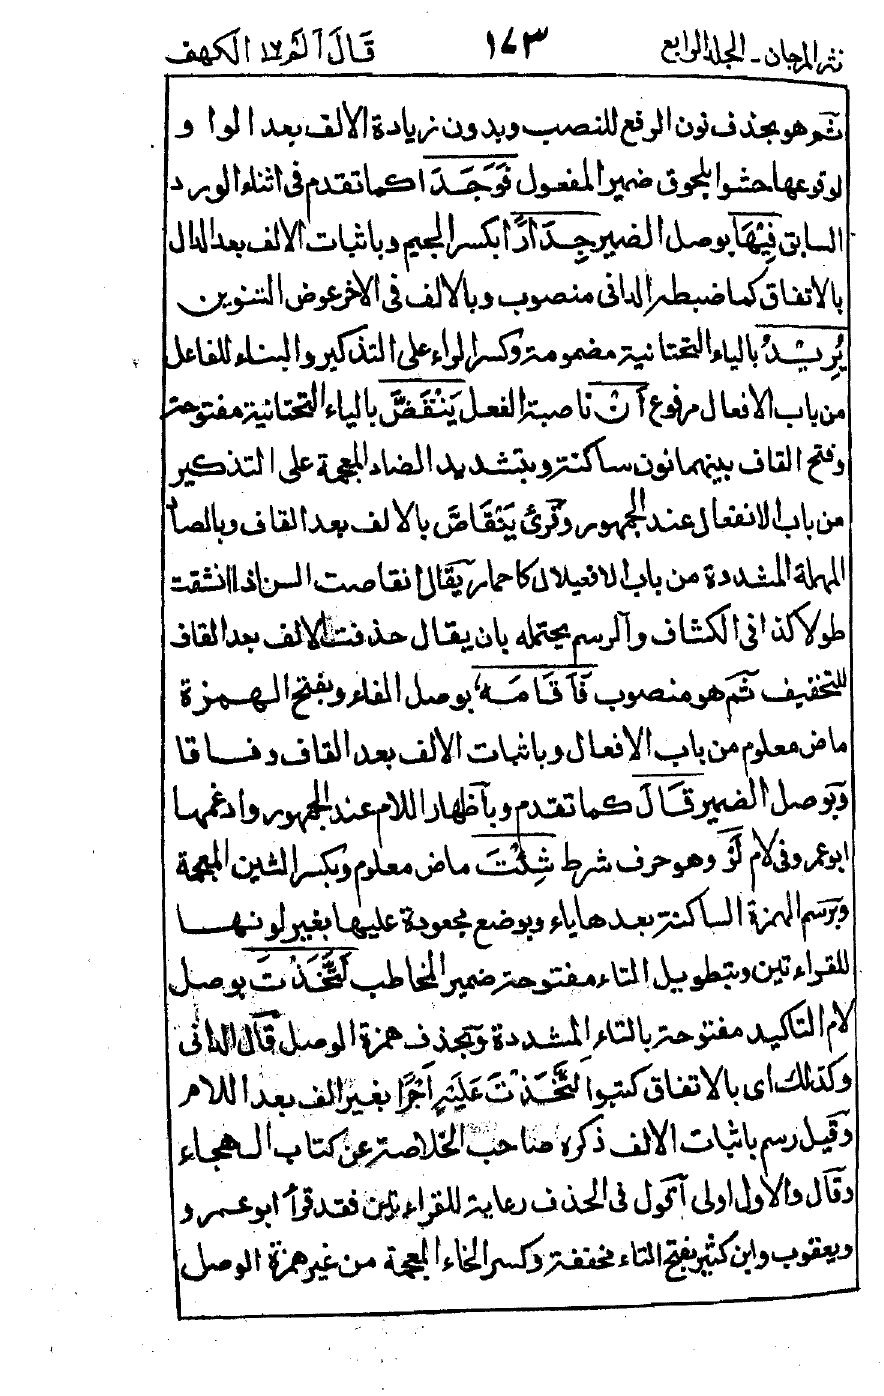 نثر المرجان - المجلد الرابع ١٧٣ قَالَ اَلَمْ ١٦ الكهف
ثم هو بحذف نون الرفع للنصب وبدون زيادة الالف بعد الواو
لوقوعها حشوا بلحوق ضمير المفعول فَوَجَدَا كما تقدم فى اثناء الورد
السابق فِيْهَا بوصل الضمير جِدَارًا بكسر الجيم وباثبات الالف بعد الدال
بالاتفاق كما ضبطه الدانى منصوب وبالالف فى الاخر عوض التنوين
يُرِيْدُ بالياء التحتانية مضمومة وكسر الراء على التذكير والبناء للفاعل
من باب الافعال مرفوع اَنْ ناصبة الفعل يَنْقَضَّ بالياء التحتانية مفتوحة
وفتح القاف بينهما نون ساكنة وبتشديد الضاد المعجمة على التذكير
من باب الانفعال عند الجمهور وقرئ يَنْقَاصَّ بالالف بعد القاف وبالصاد
المهملة المشددة من باب الافعيلال كاحمار يقال انقاصت السن اذا انشقت
طولا كذا فى الكشاف والرسم يحتمله بان يقال حذفت الالف بعد القاف
للتخفيف ثم هو منصوب فَاَقَامَهٗ بوصل الفاء وبفتح الهمزة
ماض معلوم من باب الافعال وباثبات الالف بعد القاف وفاقا
وبوصل الضمير قَالَ كما تقدم وباظهار اللام عند الجمهور وادغمها
ابو عمرو فى لام لَوْ وهو حرف شرط شِئْتَ ماض معلوم وبكسر الشين المعجمة
وبرسم الهمزة الساكنة بعدها ياء وبوضع مجعودة عليها بغير لونها
للقراءتين وبتطويل التاء مفتوحة ضمير المخاطب لَتَّخَذْتَ بوصل
لام التاكيد مفتوحة بالتاء المشددة وبحذف همزة الوصل قال الدانى
وكذلك اى بالاتفاق كتبوا لَتَّخَذْتَ عَلَيْهِ اَجْرًا بغير الف بعد اللام
وقيل رسم باثبات الالف ذكره صاحب الخلاصة عن كتاب الهجاء
وقال والاول اولى اقول فى الحذف رعاية للقراءتين فقد قرأ ابو عمرو
ويعقوب وابن كثير بفتح التاء مخففة وكسر الخاء المعجمة من غير همزة الوصل